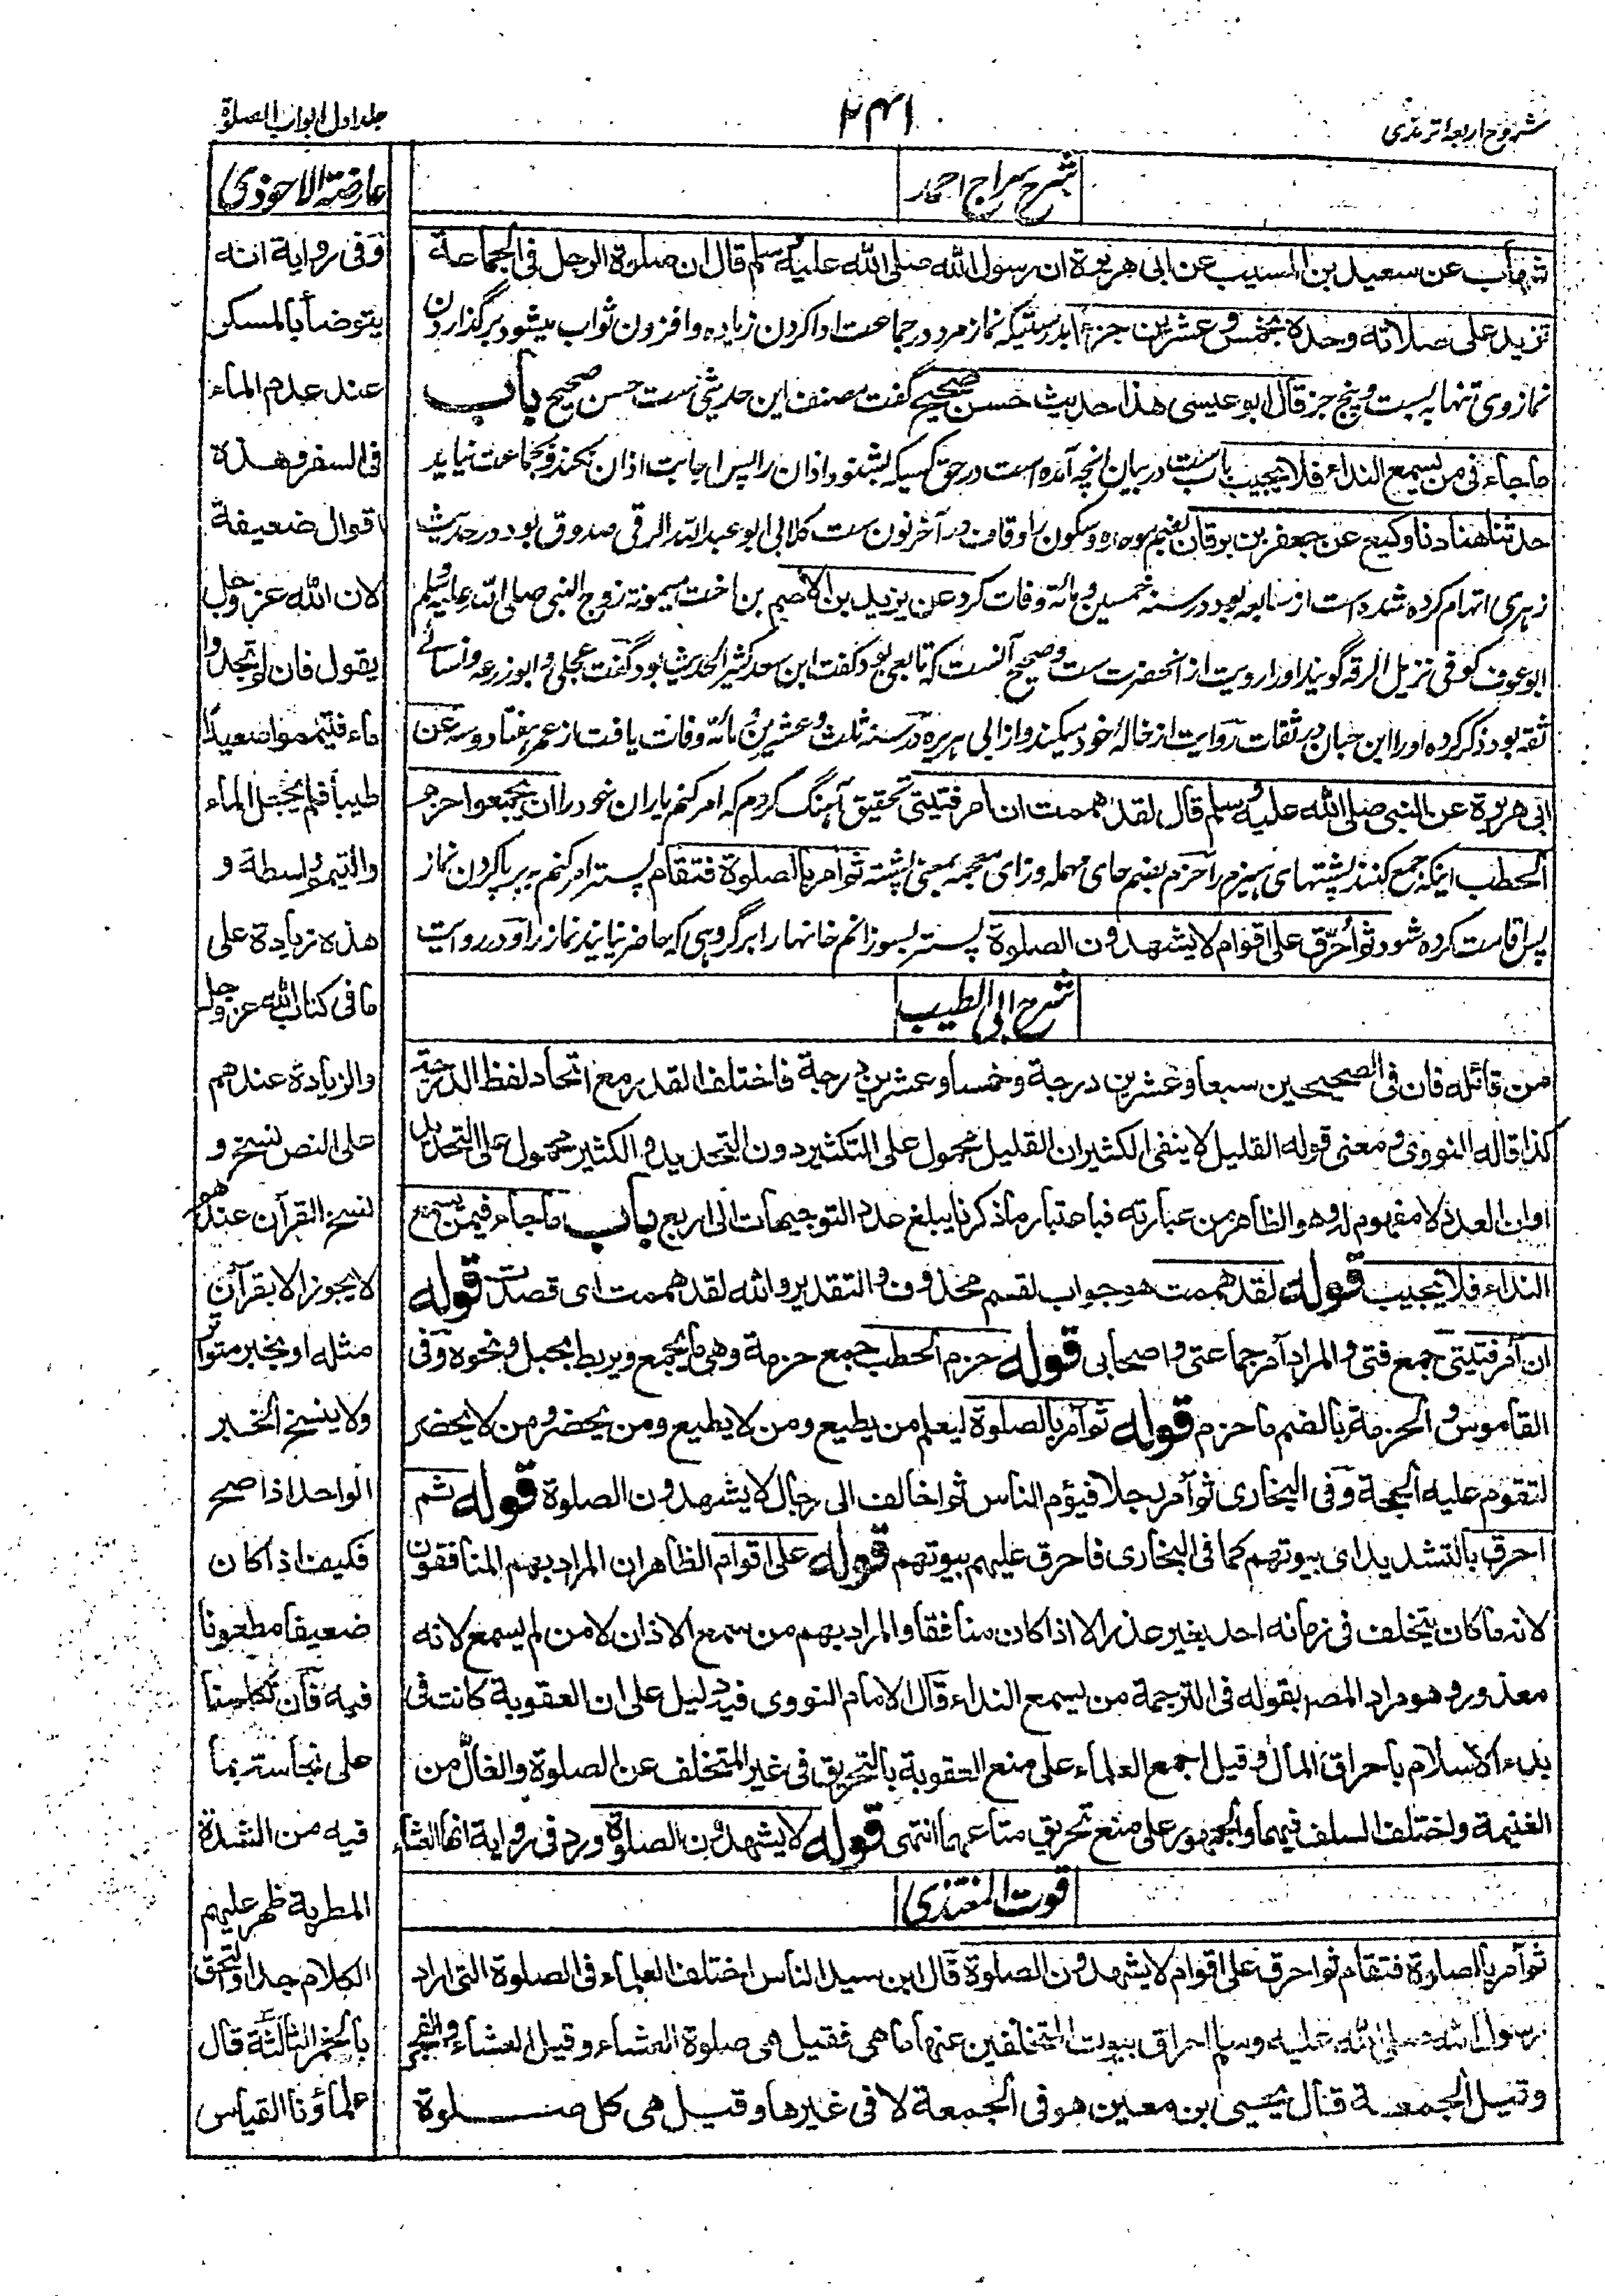 شروح اربعه ترمذی
۲۴۱
جلد اول ابواب الصلوة
شرح سراج احمد
شهاب عن سعيد بن المسيب عن ابی هريرة ان رسول الله صلی الله عليه وسلم قال ان صلوة الرجل فی الجماعة
تزيد علی صلاته وحده بخمس وعشرين جزءا بدرستیکه نماز مرد در جماعت ادا کردن زیاده و افزون ثواب میشود بر گذاردن
نماز وی تنها به بست و پنج جز قال ابو عيسی هذا حديث حسن صحيح گفت مصنف این حدیثی ست حسن صحیح باب
ما جاء فی من يسمع النداء فلا يجيب باب ست در بیان انچه آمده است در حق کسیکه بشنود اذان را پس اجابت اذان نکند و بجماعت نیاید
حدثنا هناد نا وكيع عن جعفر بن برقان بضم موحده و سکون را و قاف در آخر نون ست کلابی ابو عبد الله الرقی صدوق بود در حدیث
زهری اتهام کرده شده است از سابعه بود در سنه خمسین و مائة وفات کرد عن يزيد بن الاصم بن اخت میمونه زوج النبی صلی الله علیه وسلم
ابو عوف کوفی نزیل الرقه گویند او را رویت از انحضرت ست و صحیح آنست که تابعی بود گفت ابن سعد کثیر الحدیث بود گفت عجلی و ابو زرعه و نسائی
ثقه بود ذکر کرده او را ابن حبان در ثقات روایت از خاله خود میکند و از ابی هریره در سنه ثلث و عشرین مائة وفات یافت از عمر هفتاد و سه عن
ابی هريرة عن النبی صلی الله عليه وسلم قال لقد هممت ان آمر فتيتی تحقیق آهنگ کردم که امر کنم یاران خود را ان يجمعوا حزم
الحطب اینکه جمع کنند پشتهای هیزم را حزم بضم حای مهمله و زای معجمه بمعنی پشته ثم آمر بالصلوة فتقام پستر امر کنم به برپا کردن نماز
پس اقامت کرده شود ثم أحرّق علی اقوام لا يشهدون الصلوة پستر بسوزانم خانها را بر گروهی که حاضر نیایند نماز را و در روایت
شرح ابی الطيب
من قائله فان فی الصحيحين سبعا وعشرين درجة وخمسا وعشرين درجة فاختلف القدر مع اتحاد لفظ الدرجة
كذا قاله النووی ومعنی قوله القليل لا ينفی الكثير ان القليل محمول علی التكثير دون التحديد والكثير محمول علی التحديد
او ان العدد لا مفهوم له وهو الظاهر من عبارته فباعتبار ما ذكرنا يبلغ عدد التوجيهات الی اربع باب ما جاء فيمن يسمع
النداء فلا يجيب قوله لقد هممت هو جواب لقسم محذوف والتقدير والله لقد هممت ای قصدت قوله
ان آمر فتيتی جمع فتی والمراد آمر جماعتی واصحابی قوله حزم الحطب جمع حزمة وهی ما يجمع ويربط بحبل ونحوه وفی
القاموس والحزمة بالضم ما حزم قوله ثم آمر بالصلوة ليعلم من يطيع ومن لا يطيع ومن يحضر ومن لا يحضر
لتقوم عليه الحجة وفی البخاری ثم آمر رجلا فيؤم الناس ثم اخالف الی رجال لا يشهدون الصلوة قوله ثم
احرق بالتشديد ای بيوتهم كما فی البخاری فاحرق عليهم بيوتهم قوله علی اقوام الظاهر ان المراد بهم المنافقون
لانه ما كان يتخلف فی زمانه احد بغير عذر الا اذا كان منافقا والمراد بهم من سمع الاذان لا من لم يسمع لانه
معذور وهو مراد المصـ بقوله فی الترجمة من يسمع النداء قال الامام النووی فيه دليل علی ان العقوبة كانت فی
بدء الاسلام باحراق المال وقيل اجمع العلماء علی منع العقوبة بالتحريق فی غير المتخلف عن الصلوة والغالّ من
الغنيمة واختلف السلف فيهما والجمهور علی منع تحريق متاعهما انتهی قوله لا يشهدون الصلوة ورد فی رواية انها العشاء
قوت المغتذی
ثم آمر بالصلوة فتقام ثم احرق علی اقوام لا يشهدون الصلوة قال ابن سيد الناس اختلف العلماء فی الصلوة التی اراد
رسول الله صلی الله عليه وسلم احراق بيوت المتخلفين عنها ما هی فقيل هی صلوة العشاء وقيل العشاء والفجر
وقيل الجمعة قال يحيی بن معين هو فی الجمعة لا فی غيرها وقيل هی كل صلوة
عارضة الاحوذی
وفی رواية انه
يتوضأ بالمسكر
عند عدم الماء
فی السفر وهذه
اقوال ضعيفة
لان الله عز وجل
يقول فان لم تجدوا
ماء فتيمموا صعيدا
طيبا فلم يجعل الماء
والتيمم واسطة و
هذه زيادة علی
ما فی كتاب الله عز وجل
والزيادة عندهم
علی النص نسخ و
نسخ القرآن عندهم
لا يجوز الا بقرآن
مثله او بخبر متواتر
ولا ينسخ الخبر
الواحد اذا صح
فكيف اذا كان
ضعيفا مطعونا
فيه فان تكلمنا
علی نجاسته بما
فيه من الشدة
المطربة ظهر عليهم
الكلام جدا والتحق
بالخمر الثالثة قال
علماؤنا القياس